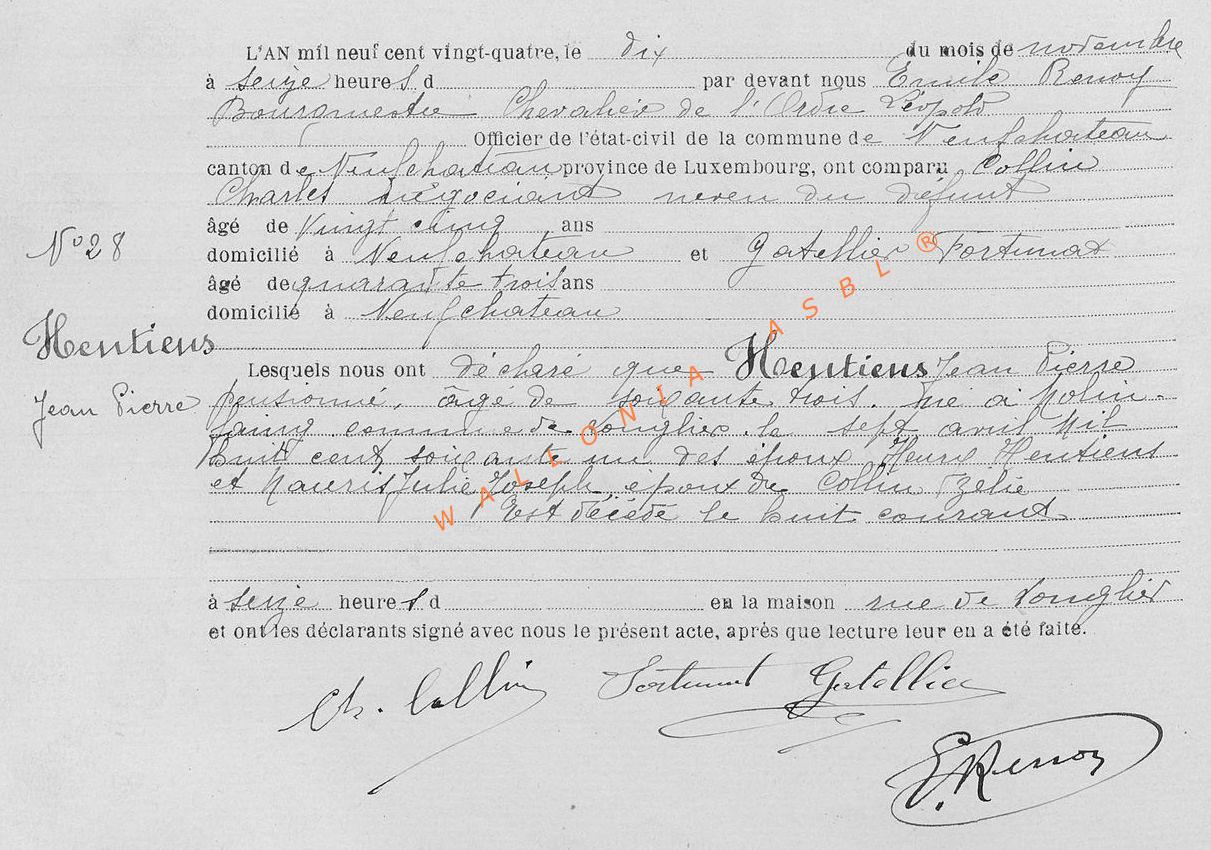 L'AN mil neuf cent vingt-quatre, le dix du mois de novembre
à seize heures d par devant nous Emile Renoy
Bourgmestre Chevalier de l'Ordre Léopold
Officier de l'état-civil de la commune de Neufchateau
canton de Neufchateau province de Luxembourg, ont comparu Collin
Charles négociant neveu du défunt
âgé de vingt cinq ans
N° 28
domicilié à Neufchateau et Gatellier Fortunat
âgé de quarante trois ans
domicilié à Neufchateau
Hentiens
Jean Pierre
Lesquels nous ont déclaré que Hentiens Jean Pierre
pensionné, âgé de soixante trois. né à Molin-
faing commune de Longlier le sept avril Mil
huit cent soixante un des époux Henry Hentiens
et Mauris Julie Joseph, époux de Collin Zélie
Est décédé le huit courant
à seize heures d en la maison rue de Longlier
et ont les déclarants signé avec nous le présent acte, après que lecture leur en a été faite.
Ch. Collin Fortunat Gatellier
E. Renoy
WALLONIA ASBL ®